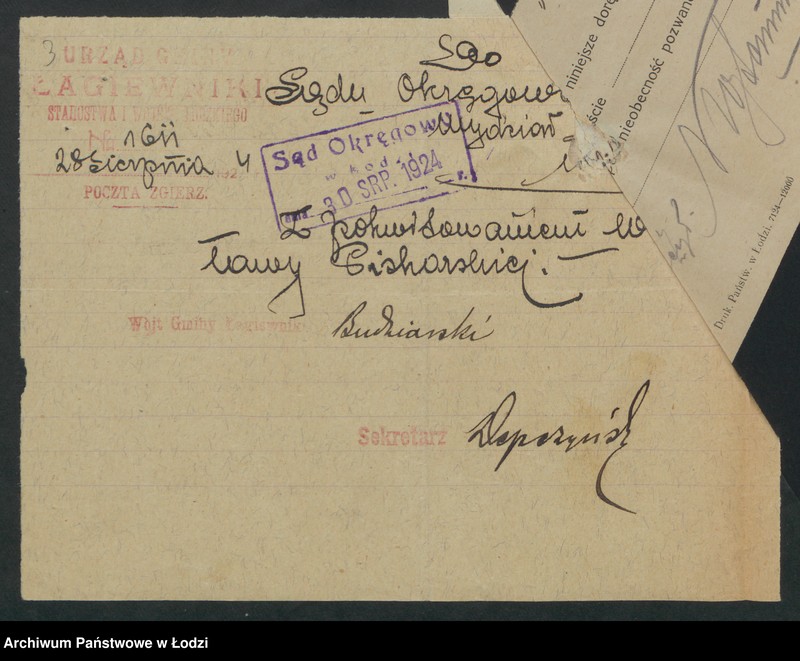 3
URZĄD GMINY
ŁAGIEWNIKI
STAROSTWA I ŁÓDZKIEGO
№ 1611
28 Sierpnia 4
192
POCZTA ZGIERZ.
Do
Sądu Okręgowe
Wydział
Sąd Okręgowy
w Łodzi
dnia 30 SRP. 1924 r.
Z pokwitowaniem W
ławy Piskorskiej.
Wójt Gminy Łagiewniki
Budziarski
Sekretarz
niniejsze dorę
ście
nieobecność pozwan
Druk. Państw. w Łodzi. 2124—12000
Archiwum Państwowe w Łodzi